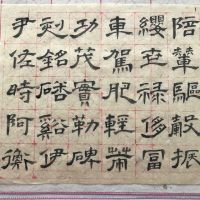 陪輦驅轂振
纓世祿侈富
車駕肥輕策
功茂實勒碑
刻銘磻谿伊
尹佐時阿衡